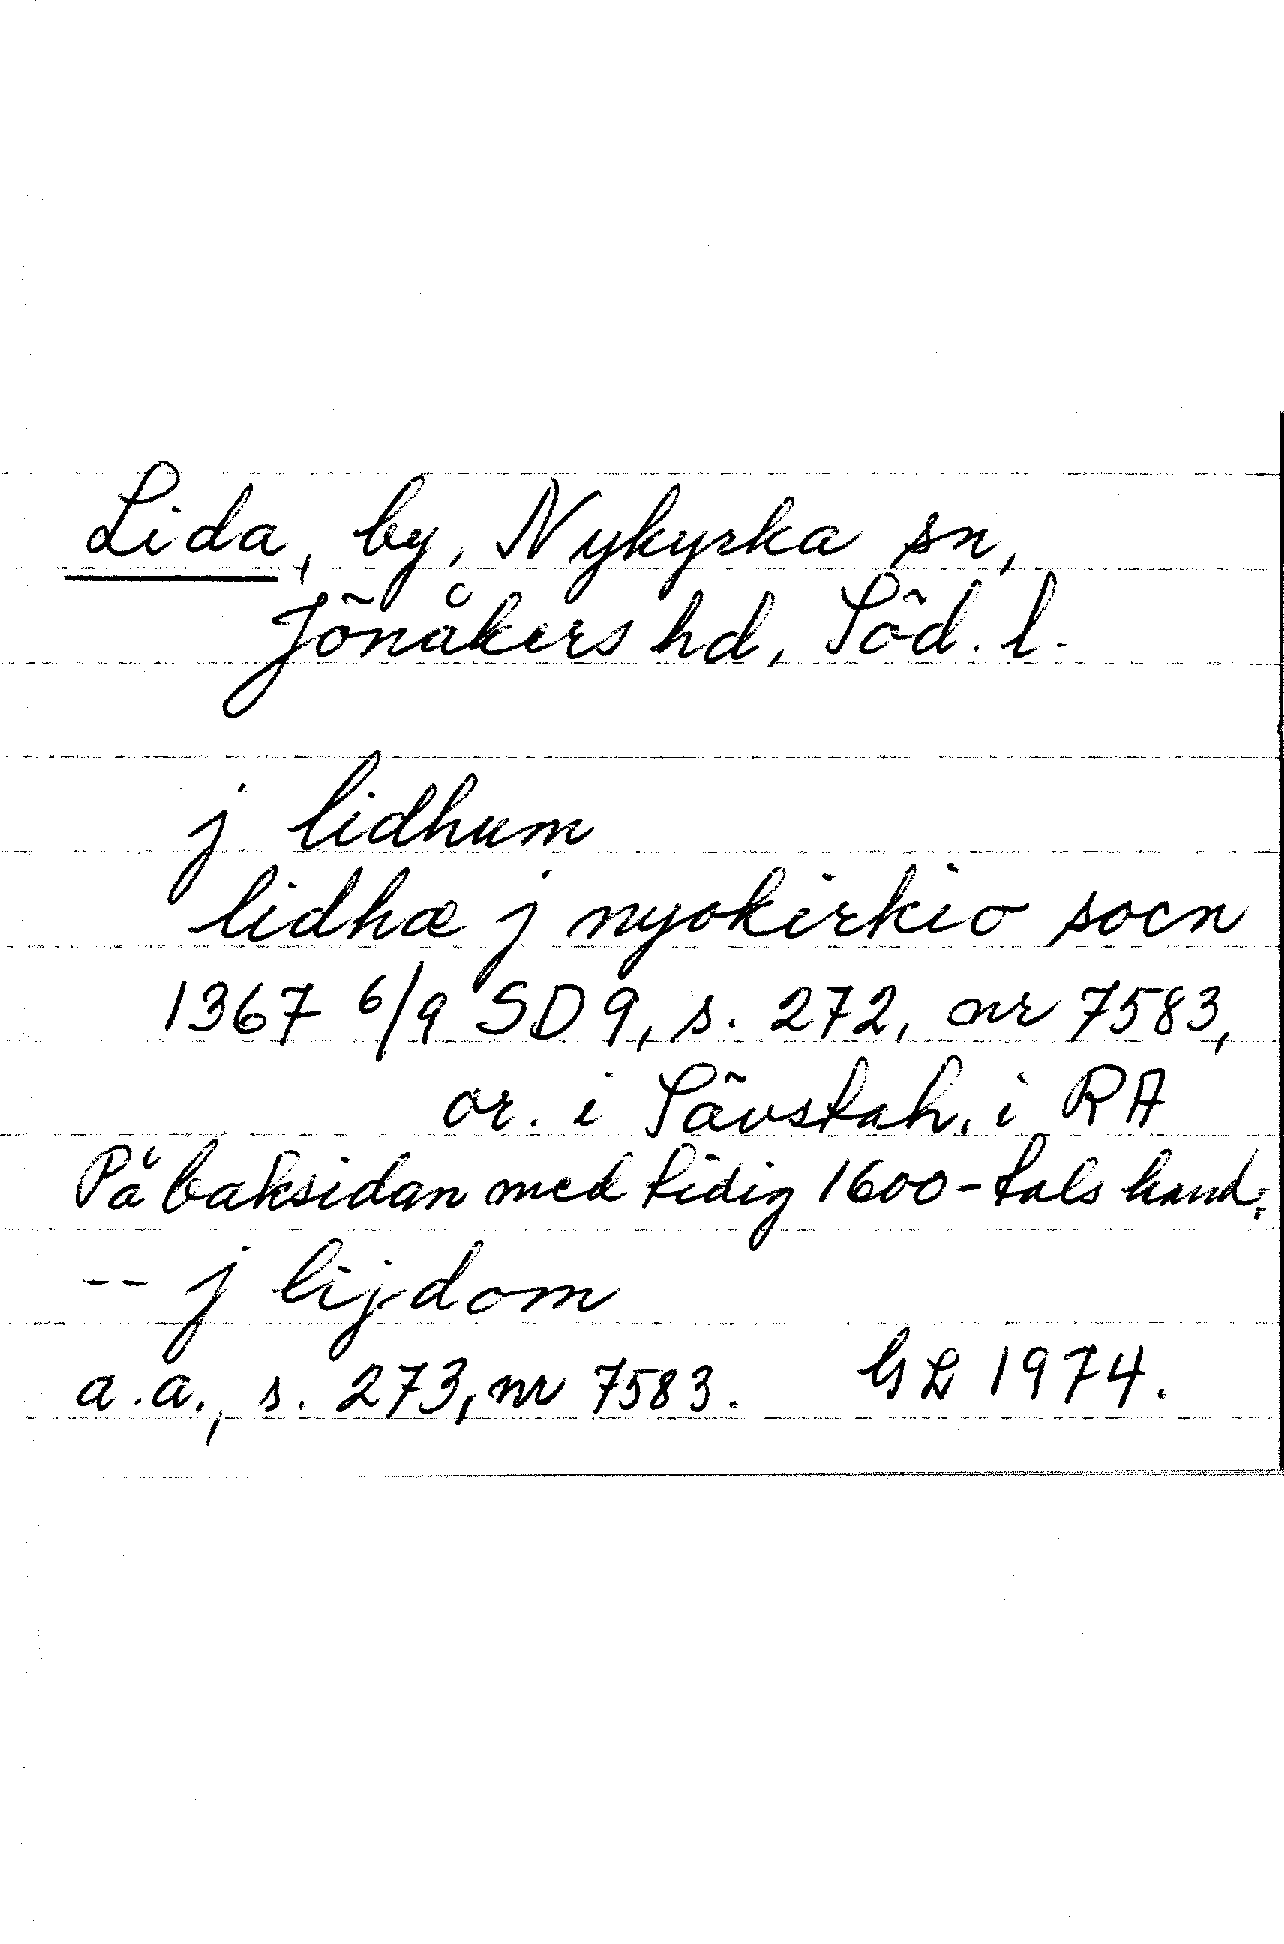 Lida, by, Nykyrka sn,
Jönåkers hd, Söd. l.
j lidhum
lidhæ j nyokirkio socn
1367 6/9 SD 9, s. 272, nr 7583,
or. i Sävstah. i RA
På baksidan med tidig 1600-tals hand:
-- j lijdom
a.a., s. 273, nr 7583. GL 1974.